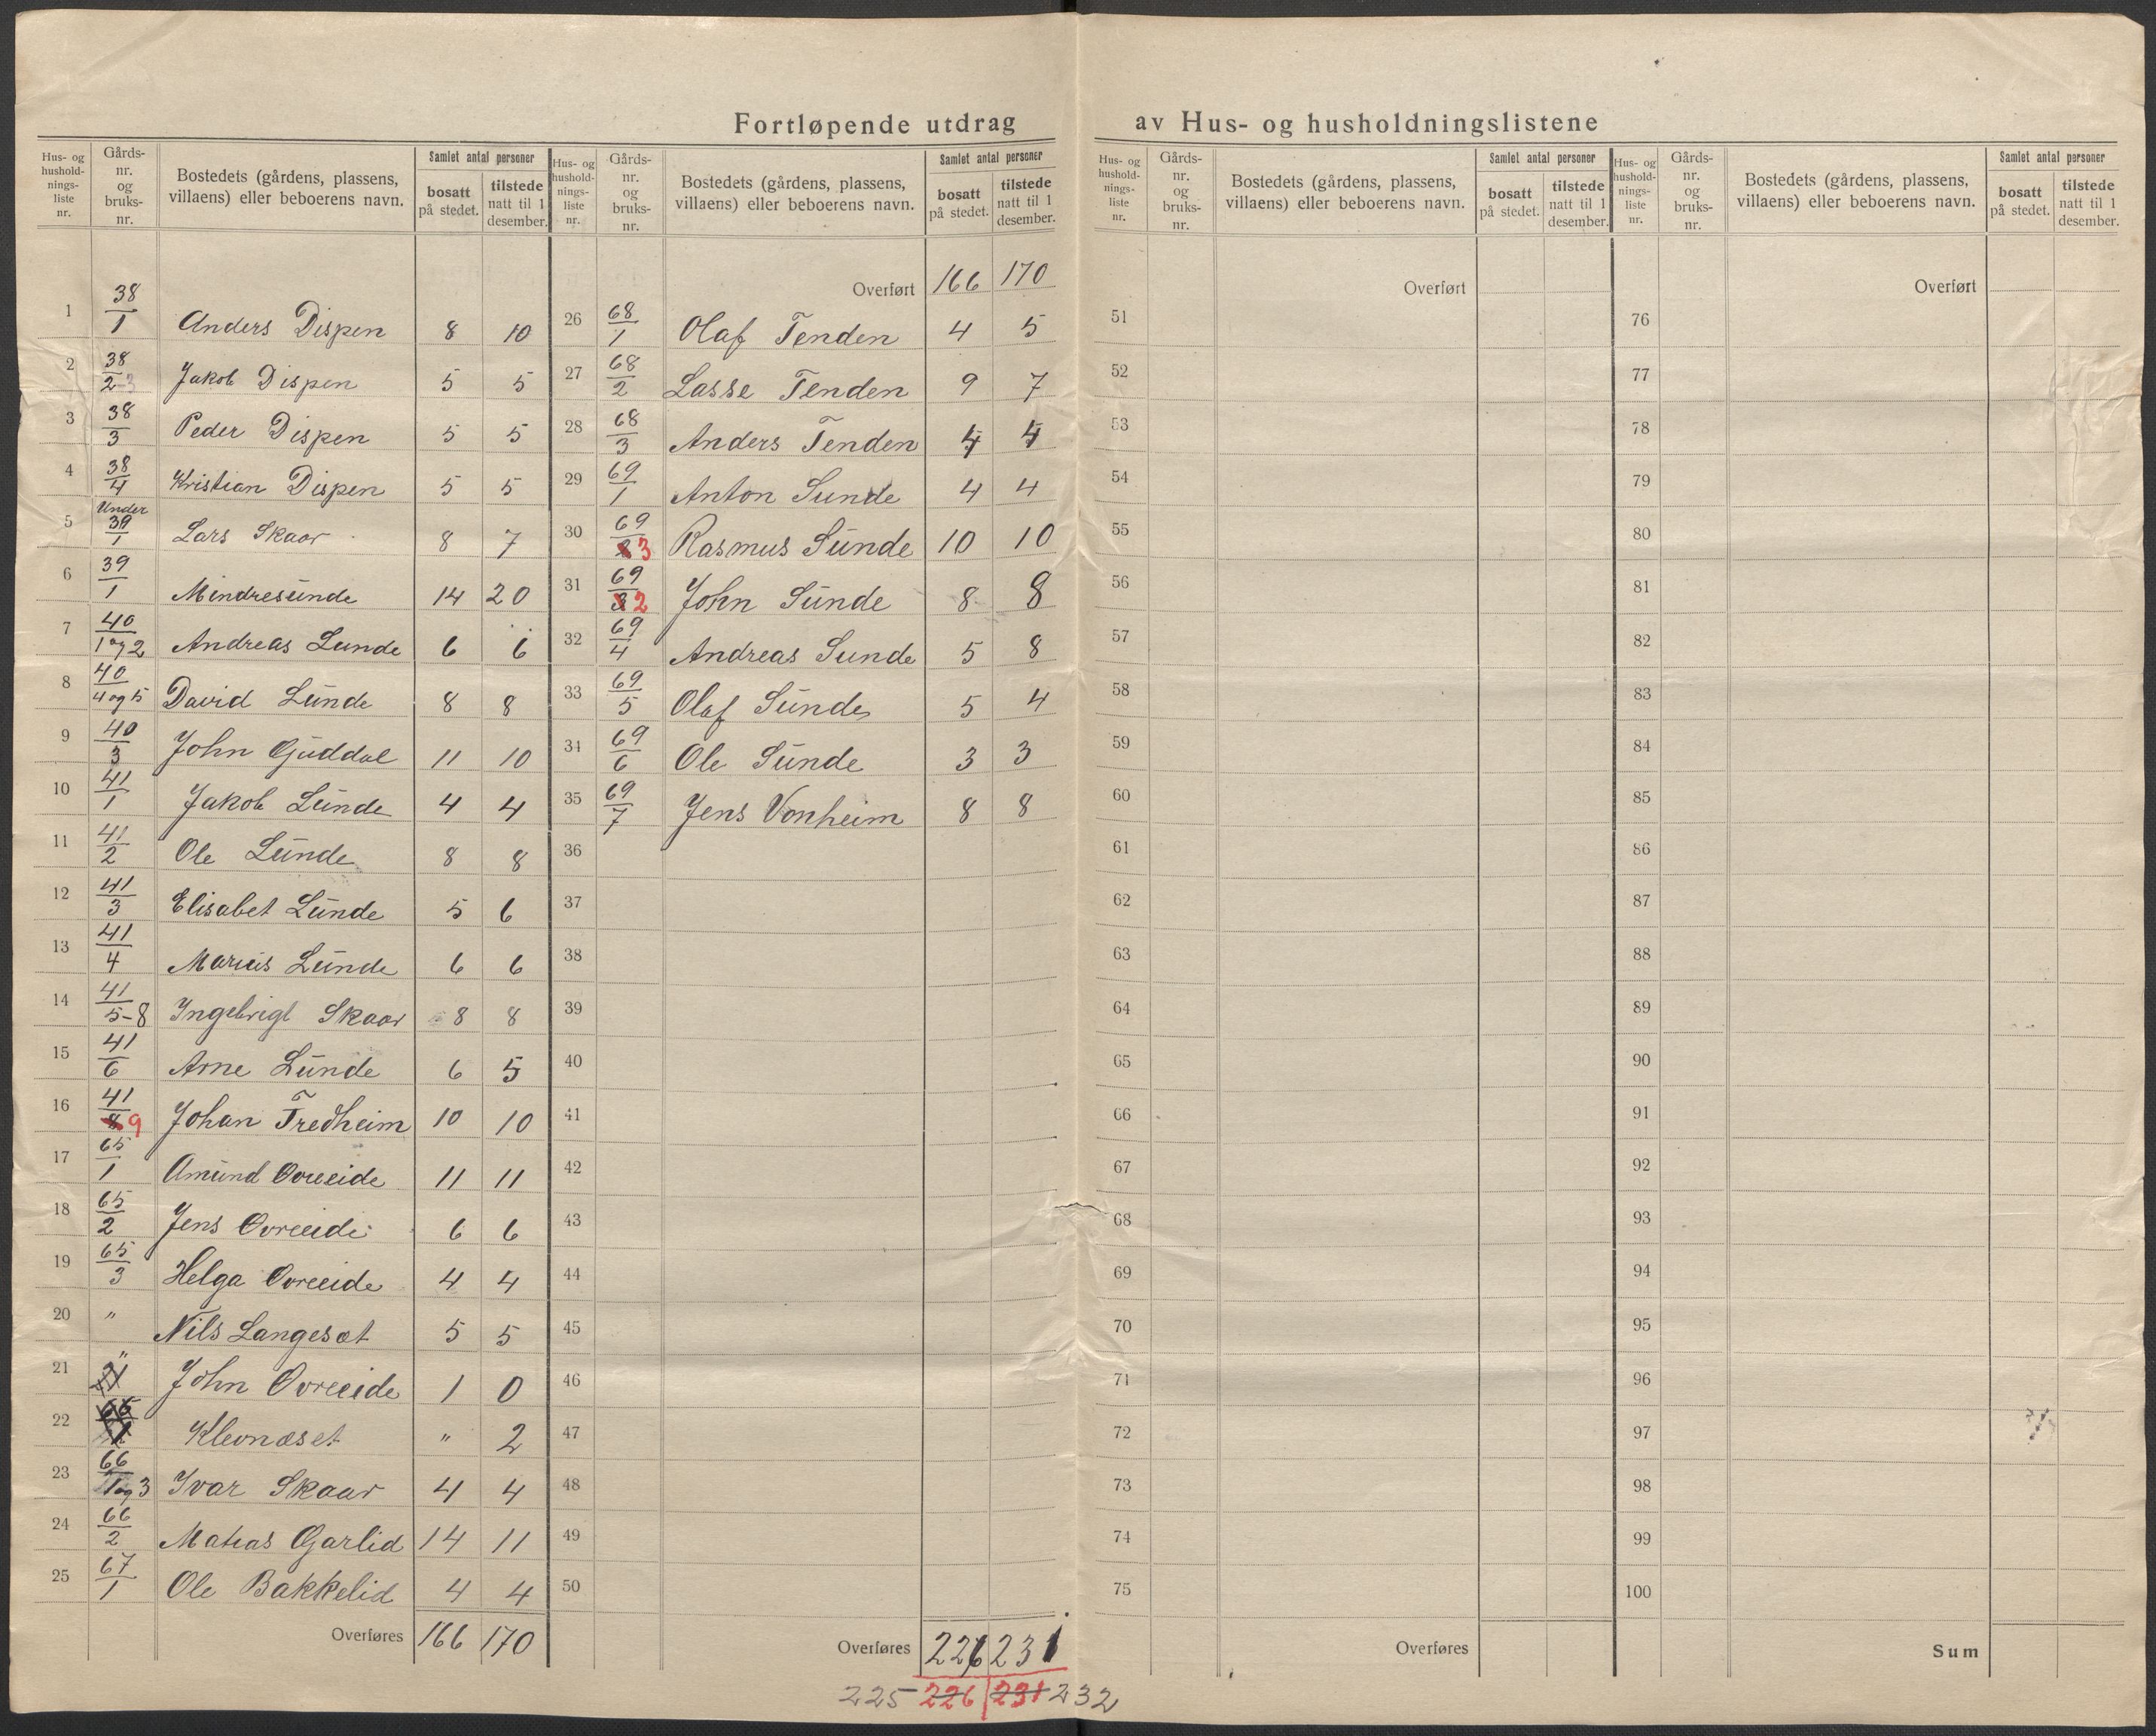 Fortløpende utdrag av Hus- og husholdningslistene
Hus- og hushold-nings-liste nr. | Gårds-nr. og bruks-nr. | Bostedets (gårdens, plassens, villaens) eller beboerens navn. | Samlet antal personer | bosatt på stedet. | tilstede natt til 1 desember.
1 38/1 Anders Dispen 8 10
2 38/2-3 Jakob Dispen 5 5
3 38/3 Peder Dispen 5 5
4 38/4 Kristian Dispen 5 5
5 Under 39/1 Lars Skaar 8 7
6 39/1 Mindresunde 14 20
7 40/1 og 2 Andreas Lunde 6 6
8 40/4 og 5 David Lunde 8 8
9 40/3 John Guddal 11 10
10 41/1 Jakob Lunde 4 4
11 41/2 Ole Lunde 8 8
12 41/3 Elisabet Lunde 5 6
13 41/4 Marius Lunde 6 6
14 41/5-8 Ingebrigt Skaar 8 8
15 41/6 Arne Lunde 6 5
16 41/9 Johan Fredheim 10 10
17 65/1 Amund Ovreeide 11 11
18 65/2 Jens Ovreeide 6 6
19 65/3 Helga Ovreeide 4 4
20 " Nils Langesæt 5 5
21 " John Ovreeide 1 0
22 Klevnæset " 2
23 66/1 og 3 Ivar Skaar 4 4
24 66/2 Matias Garlid 14 11
25 67/1 Ole Bakkelid 4 4
Overføres 166 170
Hus- og hushold-nings-liste nr. | Gårds-nr. og bruks-nr. | Bostedets (gårdens, plassens, villaens) eller beboerens navn. | Samlet antal personer | bosatt på stedet. | tilstede natt til 1 desember.
Overført 166 170
26 68/1 Olaf Tenden 4 5
27 68/2 Lasse Tenden 9 7
28 68/3 Anders Tenden 4 4
29 69/1 Anton Sunde 4 4
30 69/3 Rasmus Sunde 10 10
31 69/2 John Sunde 8 8
32 69/4 Andreas Sunde 5 8
33 69/5 Olaf Sunde 5 4
34 69/6 Ole Sunde 3 3
35 69/7 Jens Vonheim 8 8
36
37
38
39
40
41
42
43
44
45
46
47
48
49
50
Overføres 226 231
225 226 231 232
Hus- og hushold-nings-liste nr. | Gårds-nr. og bruks-nr. | Bostedets (gårdens, plassens, villaens) eller beboerens navn. | Samlet antal personer | bosatt på stedet. | tilstede natt til 1 desember.
Overført
51
52
53
54
55
56
57
58
59
60
61
62
63
64
65
66
67
68
69
70
71
72
73
74
75
Overføres
Hus- og hushold-nings-liste nr. | Gårds-nr. og bruks-nr. | Bostedets (gårdens, plassens, villaens) eller beboerens navn. | Samlet antal personer | bosatt på stedet. | tilstede natt til 1 desember.
Overført
76
77
78
79
80
81
82
83
84
85
86
87
88
89
90
91
92
93
94
95
96
97
98
99
100
Sum